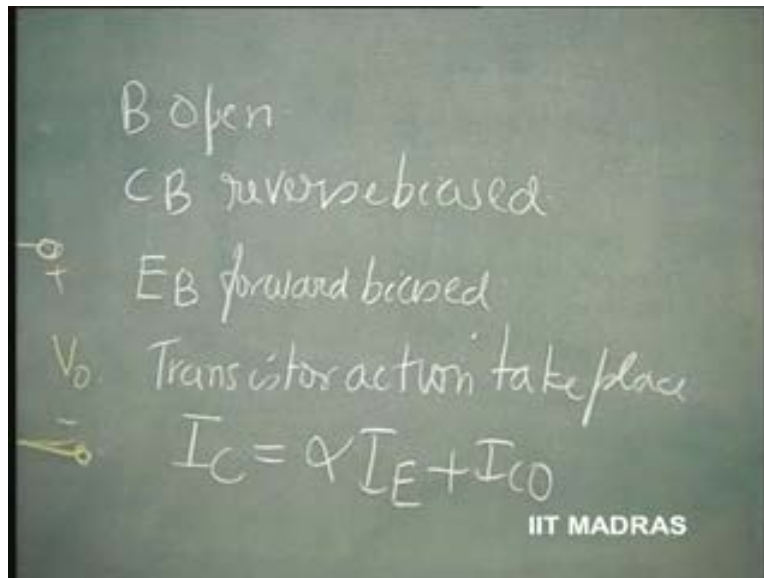 B open
CB reverse biased
+
EB forward biased
Vo
Transistor action take place
-
IC = αIE + ICO
IIT MADRAS